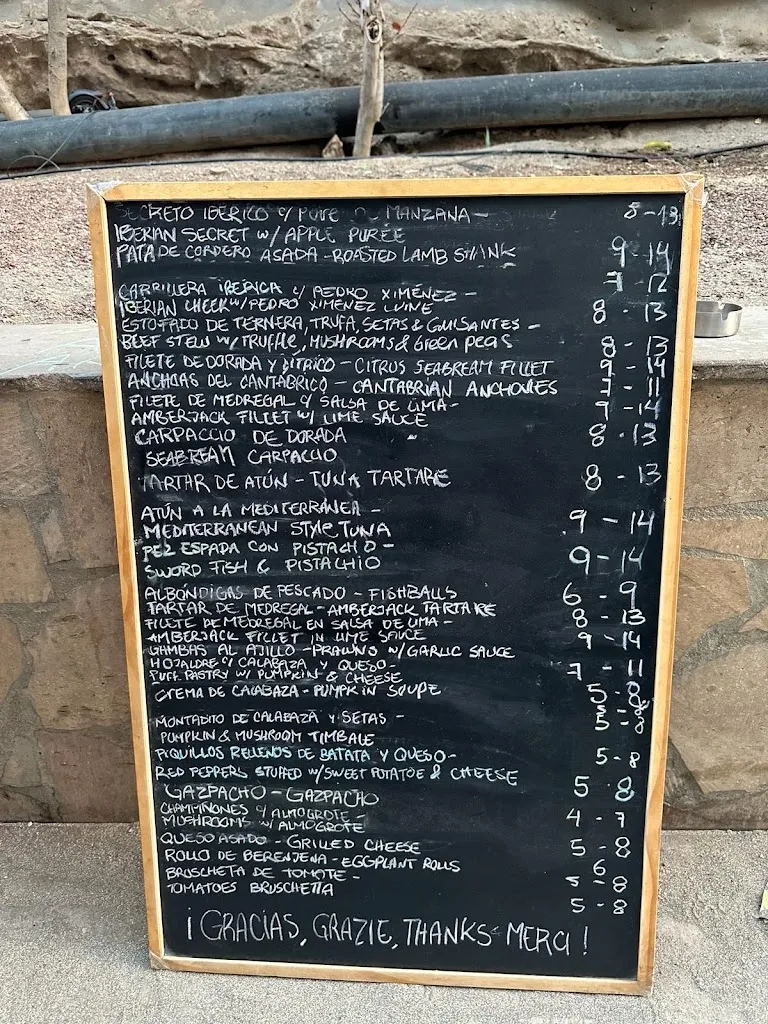 SECRETO IBERICO C/ PURE DE MANZANA - 8-13
IBERIAN SECRET W/ APPLE PURÉE
PATA DE CORDERO ASADA - ROASTED LAMB SHANK 9-14
7-12
CARRILLERA IBERICA C/ PEDRO XIMÉNEZ -
IBERIAN CHEEK W/ PEDRO XIMENEZ WINE 8-13
ESTOFADO DE TERNERA, TRUFA, SETAS & GUISANTES -
BEEF STEW W/ TRUFFLE, MUSHROOMS & GREEN PEAS 8-13
FILETE DE DORADA Y CITRICO - CITRUS SEABREAM FILLET 9-14
ANCHOAS DEL CANTÁBRICO - CANTABRIAN ANCHOVIES 7-11
FILETE DE MEDREGAL C/ SALSA DE LIMA - 9-14
AMBERJACK FILLET W/ LIME SAUCE
CARPACCIO DE DORADA 8-13
SEABREAM CARPACCIO
TARTAR DE ATÚN - TUNA TARTARE 8-13
ATÚN A LA MEDITERRÁNEA -
MEDITERRANEAN STYLE TUNA 9-14
PEZ ESPADA CON PISTACHO -
SWORD FISH & PISTACHIO 9-14
ALBÓNDIGAS DE PESCADO - FISHBALLS 6-9
TARTAR DE MEDREGAL - AMBERJACK TARTARE 8-13
FILETE DE MEDREGAL EN SALSA DE LIMA -
AMBERJACK FILLET IN LIME SAUCE 9-14
GAMBAS AL AJILLO - PRAWNS W/ GARLIC SAUCE
HOJALDRE C/ CALABAZA Y QUESO - 7-11
PUFF PASTRY W/ PUMPKIN & CHEESE
CREMA DE CALABAZA - PUMPKIN SOUPE 5-8
MONTADITO DE CALABAZA Y SETAS - 5-8
PUMPKIN & MUSHROOM TIMBALE
PIQUILLOS RELLENOS DE BATATA Y QUESO - 5-8
RED PEPPERS STUFED W/ SWEET POTATOE & CHEESE
GAZPACHO - GAZPACHO 5-8
CHAMPIÑONES C/ ALMOGROTE -
MUSHROOMS W/ ALMOGROTE 4-7
QUESO ASADO - GRILLED CHEESE 5-8
ROLLO DE BERENJENA - EGGPLANT ROLLS 6
BRUSCHETA DE TOMATE - 5-8
TOMATOES BRUSCHETTA 5-8
¡GRACIAS, GRAZIE, THANKS MERCI!